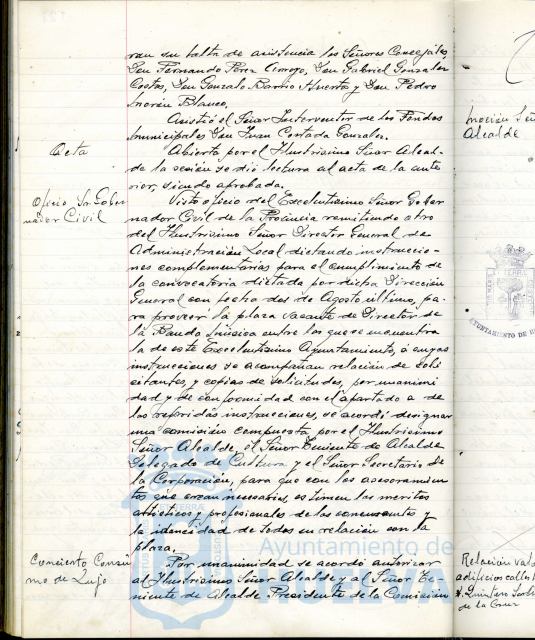 ran su falta de asistencia los Señores Concejales,
Don Fernando Perez Don Gabriel Gonzalez
Costas, Don Gonzalo Barrio Huerta y Don Pedro
Morón Blanco.
Asistió el Señor Interventor de los Fondos
municipales Don Juan Cortada Gonzalez.
Acta
Abierta por el Ilustrisimo Señor Alcal-
de la sesión se dió lectura al acta de la ante
rior, siendo aprobada.
Oficio Sr. Gober
nador Civil
Visto oficio del Excelentisimo Señor Gober
nador Civil de la Provincia remitiendo otro
del Ilustrisimo Señor Director General de
Administración Local dictando instruccio-
nes complementarias para el cumplimiento de
la convocatoria dictada por dicha Dirección
General con fecha dos de Agosto ultimo, pa-
ra proveer la plaza vacante de Director de
la Banda Música entre las que se encuentra
la de este Excelentisimo Ayuntamiento, á cuyas
instrucciones se acompañan relación de soli
citantes, y copias de solicitudes, por unanimi
dad y de conformidad con el apartado a de
las referidas instrucciones, se acordó designar
una comisión compuesta por el Ilustrisimo
Señor Alcalde, el Señor Teniente de Alcalde
Delegado de Cultura y el Señor Secretario de
la Corporación, para que con los asesoramien
tos que crean necesarios, estimen los meritos
artisticos y profesionales de los concursantes y
la idoneidad de todos en relación con la
plaza.
Concierto Consu
mo de Lujo
Por unanimidad se acordó autorizar
al Ilustrisimo Señor Alcalde y al Señor Te-
niente de Alcalde Presidente de la Comisión
Moción Señ
Alcalde
AYUNTAMIENTO DE H
Relación valo
edificios calles
Quintero
de la Cruz
Ayuntamiento de
HUELVA